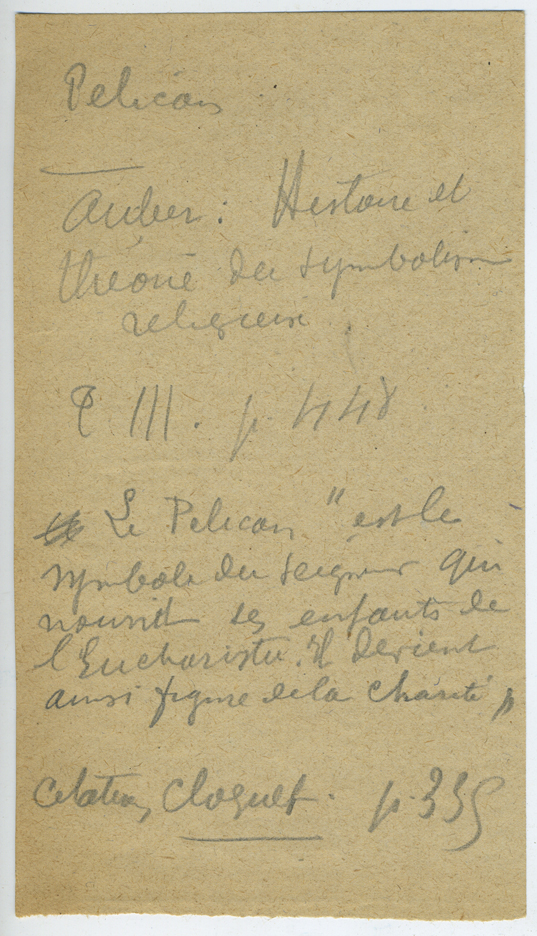 Pelican
Auber : Histoire et
théorie du symbolisme
religieux
T III. p. 448
Le Pelican " est le
symbole du Seigneur qui
nourrit ses enfants de
l'Eucharistie. Il devient
ainsi figure de la charité "
citation Cloquet. p. 335